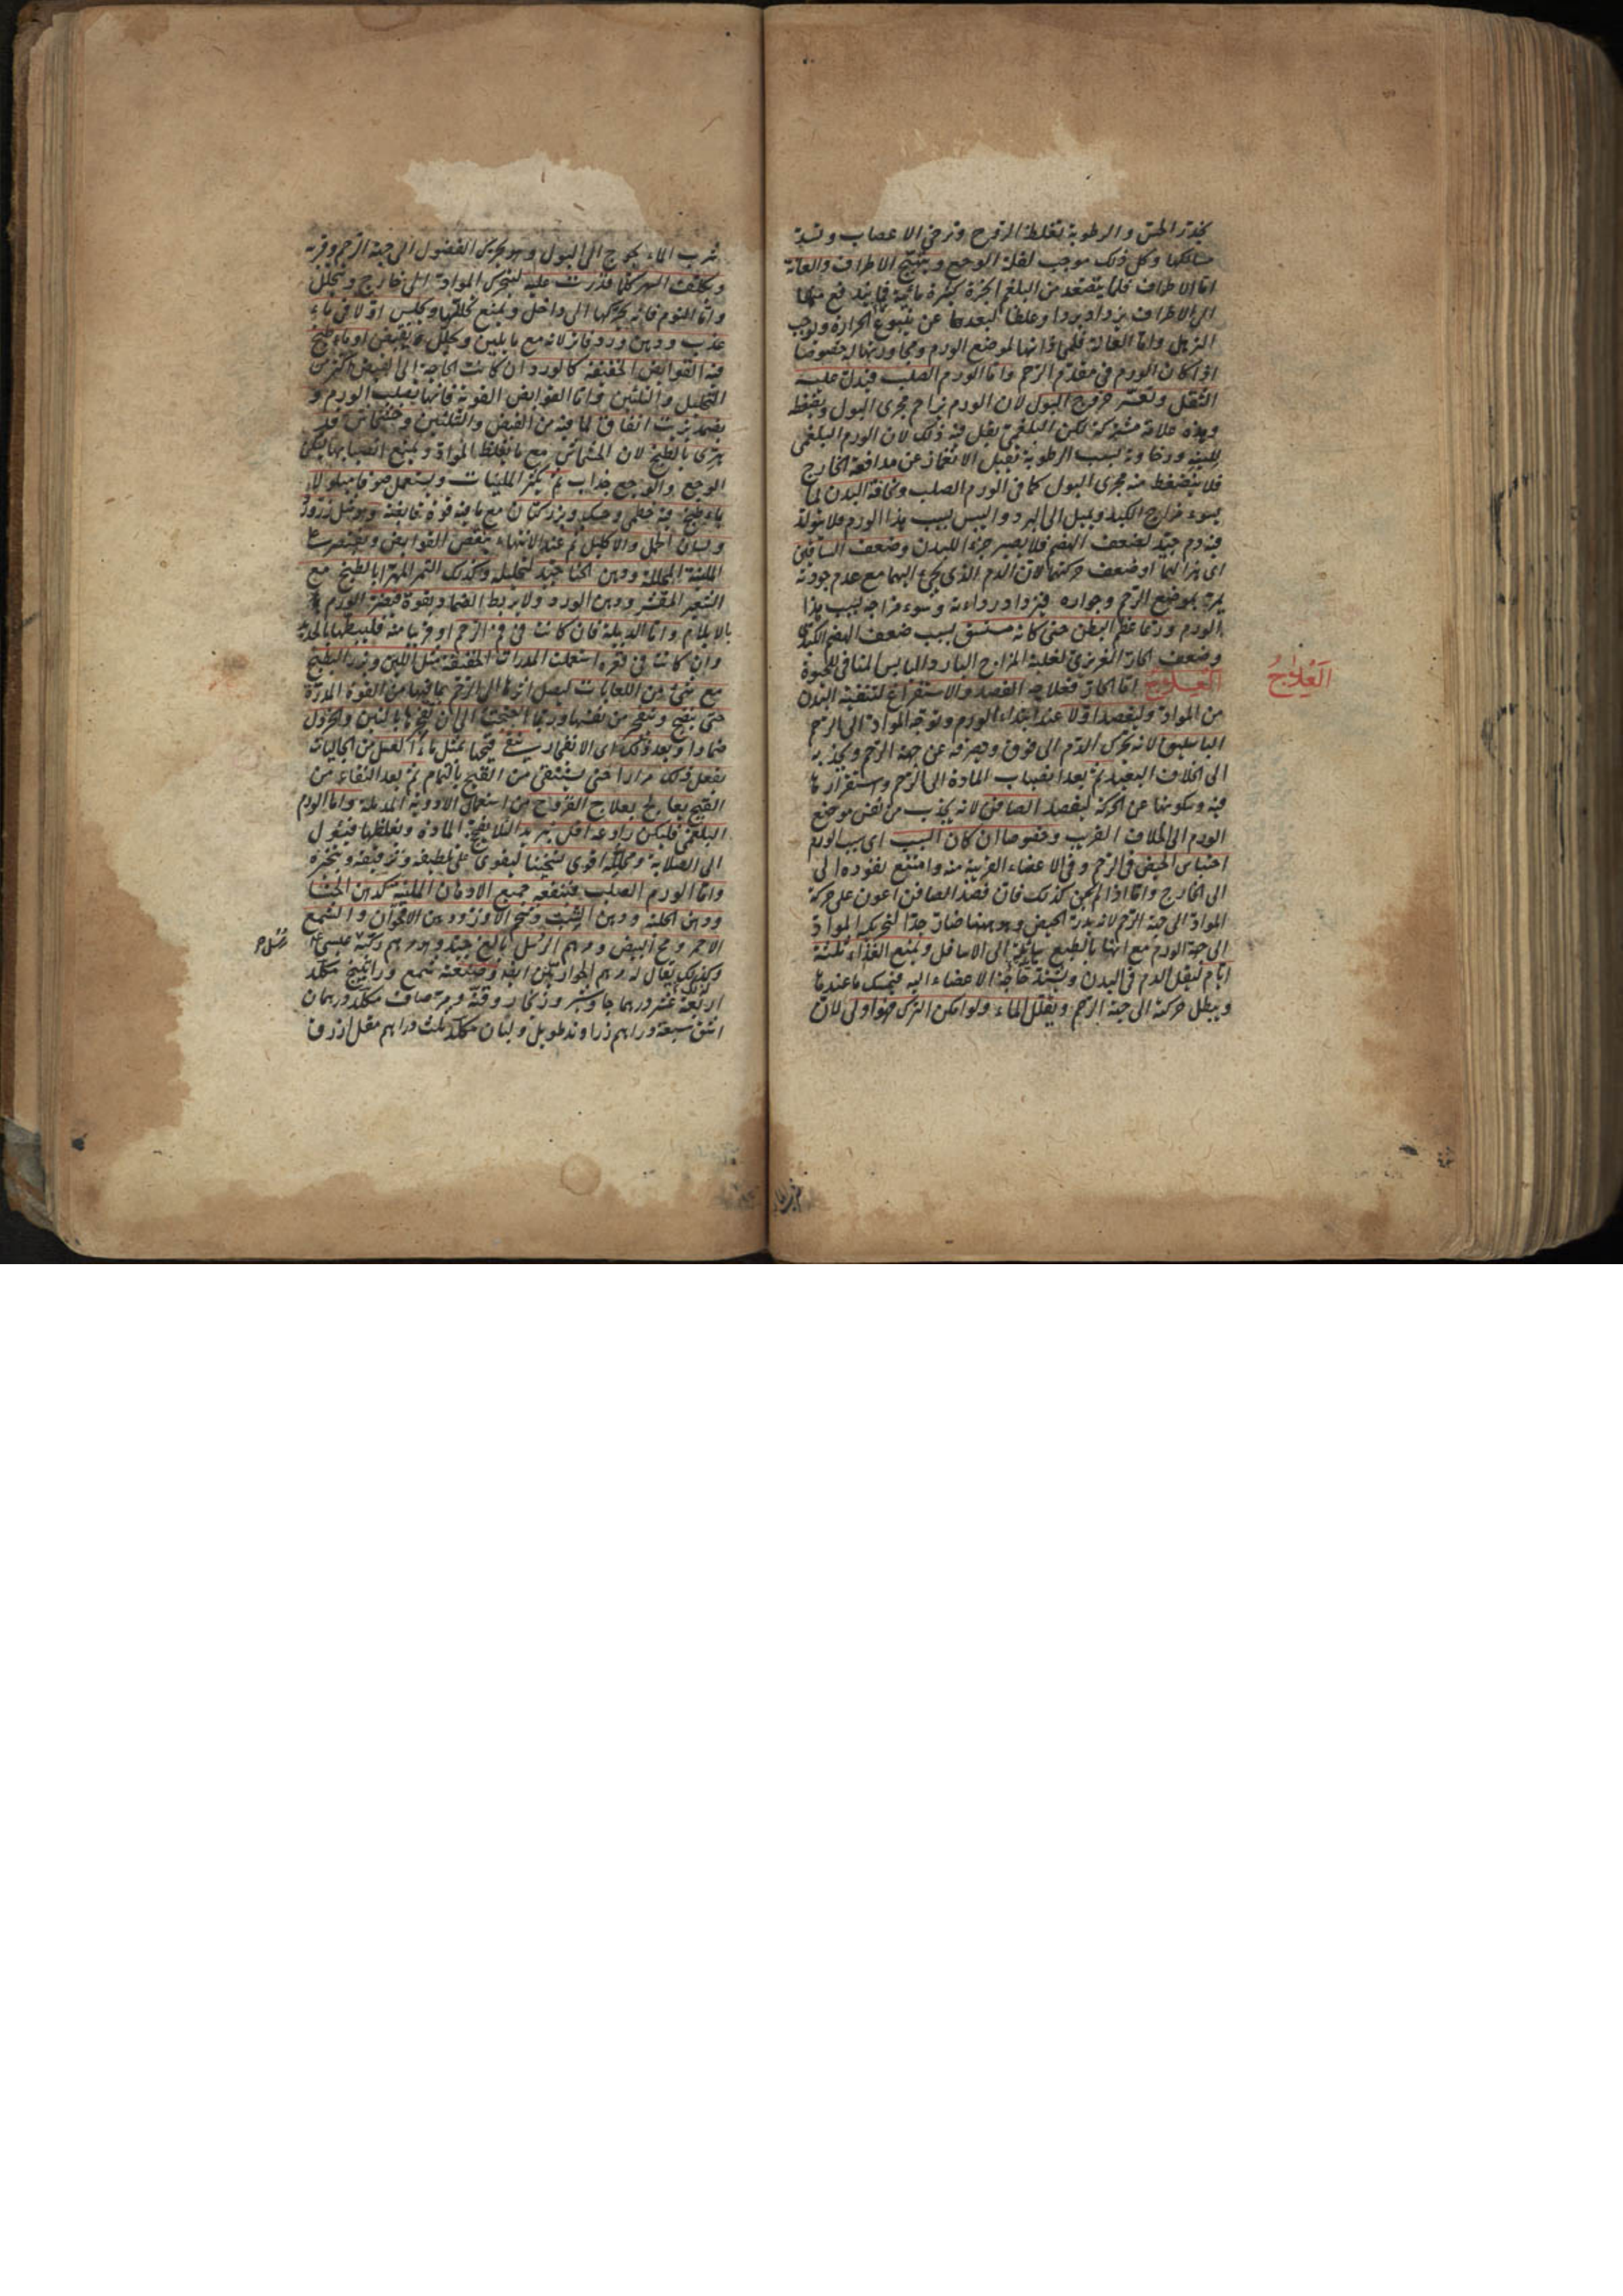 يخدر الحس و الرطوبة تغلظ الروح و ترخي الاعصاب و تسد
مسالكها و كل ذلك موجب لقلة الوجع و يتهيج الاطراف و العانة
اما الاطراف فلما يتصعد من البلغم ابخرة كثيرة مائية فما يندفع منها
الى الاطراف يزداد بردا و غلظا لبعدها عن ينبوع الحرارة و يوجب
الترهل و اما العانة فلمحاذاتها لموضع الورم و مجاورتها له خصوصا
اذا كان الورم في مقدم الرحم و اما الورم الصلب فيدل عليه
الثقل و تعسر خروج البول لان الورم يزاحم مجرى البول و يضغطه
و هذه علامة مشتركة لكن البلغمي يقل فيه ذلك لان الورم البلغمي
للينه و رخاوته بسبب الرطوبة يقبل الانغماز عن مدافعة الخارج
فلا ينضغط منه مجرى البول كما في الورم الصلب و نحافة البدن لما
يسوء مزاج الكبد و يميل الى البرد و اليبس بسبب هذا الورم فلا يتولد
فيه دم جيد لضعف الهضم فلا يصير جزء اللبدن و ضعف الساقين
اى هزالهما او ضعف حركتهما لان الدم الذي يجيء اليهما مع عدم جودته
يمر بموضع الرحم و جواره فيزداد رداءة و سوء مزاجه بسبب هذا
الورم و ربما عظم البطن حتى كانه مستسق بسبب ضعف الهضم الكبدي
و ضعف الحار الغريزي لغلبة المزاج البارد اليابس المنافي للحيوة
العلاج اما الحار فعلاجه الفصد و الاستفراغ لتنقية البدن
العلاج
من المواد و ليفصد اولا عند ابتداء الورم و توجه المواد الى الرحم
الباسليق لانه يحرك الدم الى فوق و يصرفه عن جهة الرحم و يجذبه
الى الخلاف البعيد ثم بعد انصباب المادة الى الرحم و استقرارها
فيه و سكونها عن الحركة ليفصد الصافن لانه يجذب من نفس موضع
الورم الى الخلاف القريب و خصوصا ان كان السبب اى سبب الورم
احتباس الحيض في الرحم و في الاعضاء القريبة منه و امتنع نفوذه الى
الى الخارج و اما اذا لم يكن كذلك فان فصد الصافن اعون على حركة
المواد الى جهة الرحم لانه يدر الحيض و هو ههنا ضار جدا لتحريك المواد
الى جهة الورم مع انها بالطبع مايلة الى الاسافل و يمنع الغذاء ثلثة
ايام ليقل الدم في البدن و يشتد حاجة الاعضاء اليه فيمسك ما عندها
و يبطل حركته الى جهة الرحم و يقلل الماء و لو امكن الترك فهو اولى لان
شرب الماء يحوج الى البول و هو يحرك الفضول الى جهة الرحم و قربه
و يكلف السهر كلما قدرت عليه لتتحرك المواد الى خارج و يتحلل
و اما النوم فانه يحركها الى داخل و يمنع تحللها و يجلس اولا في ماء
عذب و دهن ورد فانه مع ما يلين و يحلل يقبض او ماء طبخ
فيه القوابض الخفيفة كالورد ان كانت الحاجة الى القبض اكثر من
التحليل و التليين و اما القوابض القوية فانها يصلب الورم و
يضمد بزيت انفاق لما فيه من القبض و التليين و خشخاش قد
هرى بالطبخ لان الخشخاش مع ما يغلظ المواد و يمنع انصبابها يسكن
الوجع و الوجع جذاب ثم يكثر الملينات و يستعمل صوفا مبلولا
بماء طبخ فيه خطمي و حسك و بزر كتان مع ما فيه قوة قابضة و هو مثل زرورد
و لسان الحمل و الاكليل ثم عند الانتهاء ينقص القوابض و يقتصر على
الملينة المحللة و دهن الحنا جيد لتحليله و كذلك التمر المهرا بالطبخ مع
الشعير المقشر و دهن الورد و لا يربط الضماد بقوة فيضر الورم
بالايلام و اما الدبيلة فان كانت في فم الرحم او قريبا منه فليبطها بالحديد
و ان كانت في قعره استعملت المدرات الخفيفة مثل اللبن و بزر البطيخ
مع شيء من اللعابات ليصل اثرها الى الرحم بما فيها من القوة المدرة
حتى ينضج و ينفجر من نفسها و ربما احتجت الى ان تفجرها بالتين و الخردل
ضمادا و بعد ذلك اى الانفجار ينقى قيحها بمثل ماء العسل من الجاليات
يفعل ذلك مرارا حتى يستنقى من القيح بالتمام ثم بعد النقاء من
القيح يعالج بعلاج القروح من استعمال الادوية المدملة و اما الورم
البلغمي فليكن رادعه اقل تبريدا لئلا يفجج المادة و يغلظها فيتحول
الى الصلابة و محلله اقوى تسخينا ليقوى على تلطيفه و ترقيقه و تبخيره
و اما الورم الصلب فينفعه جميع الادهان الملينة كدهن الحنا
و دهن الحلبة و دهن الشبت و شحم الاوز و دهن الاقحوان و الشمع
الاحمر و مح البيض و مرهم الرسل بالغ جيد و هو مرهم ركبه عيسى
و كذلك يقال له مرهم الحواريين ايضا و صنعته شمع و راتينج مكلد
اربعة عشر درهما جاوشير و زنجار و قنة و مر صاف مكلد درهمان
اشق سبعة دراهم زراوند طويل و لبان مكلد ثلث دراهم مقل ازرق